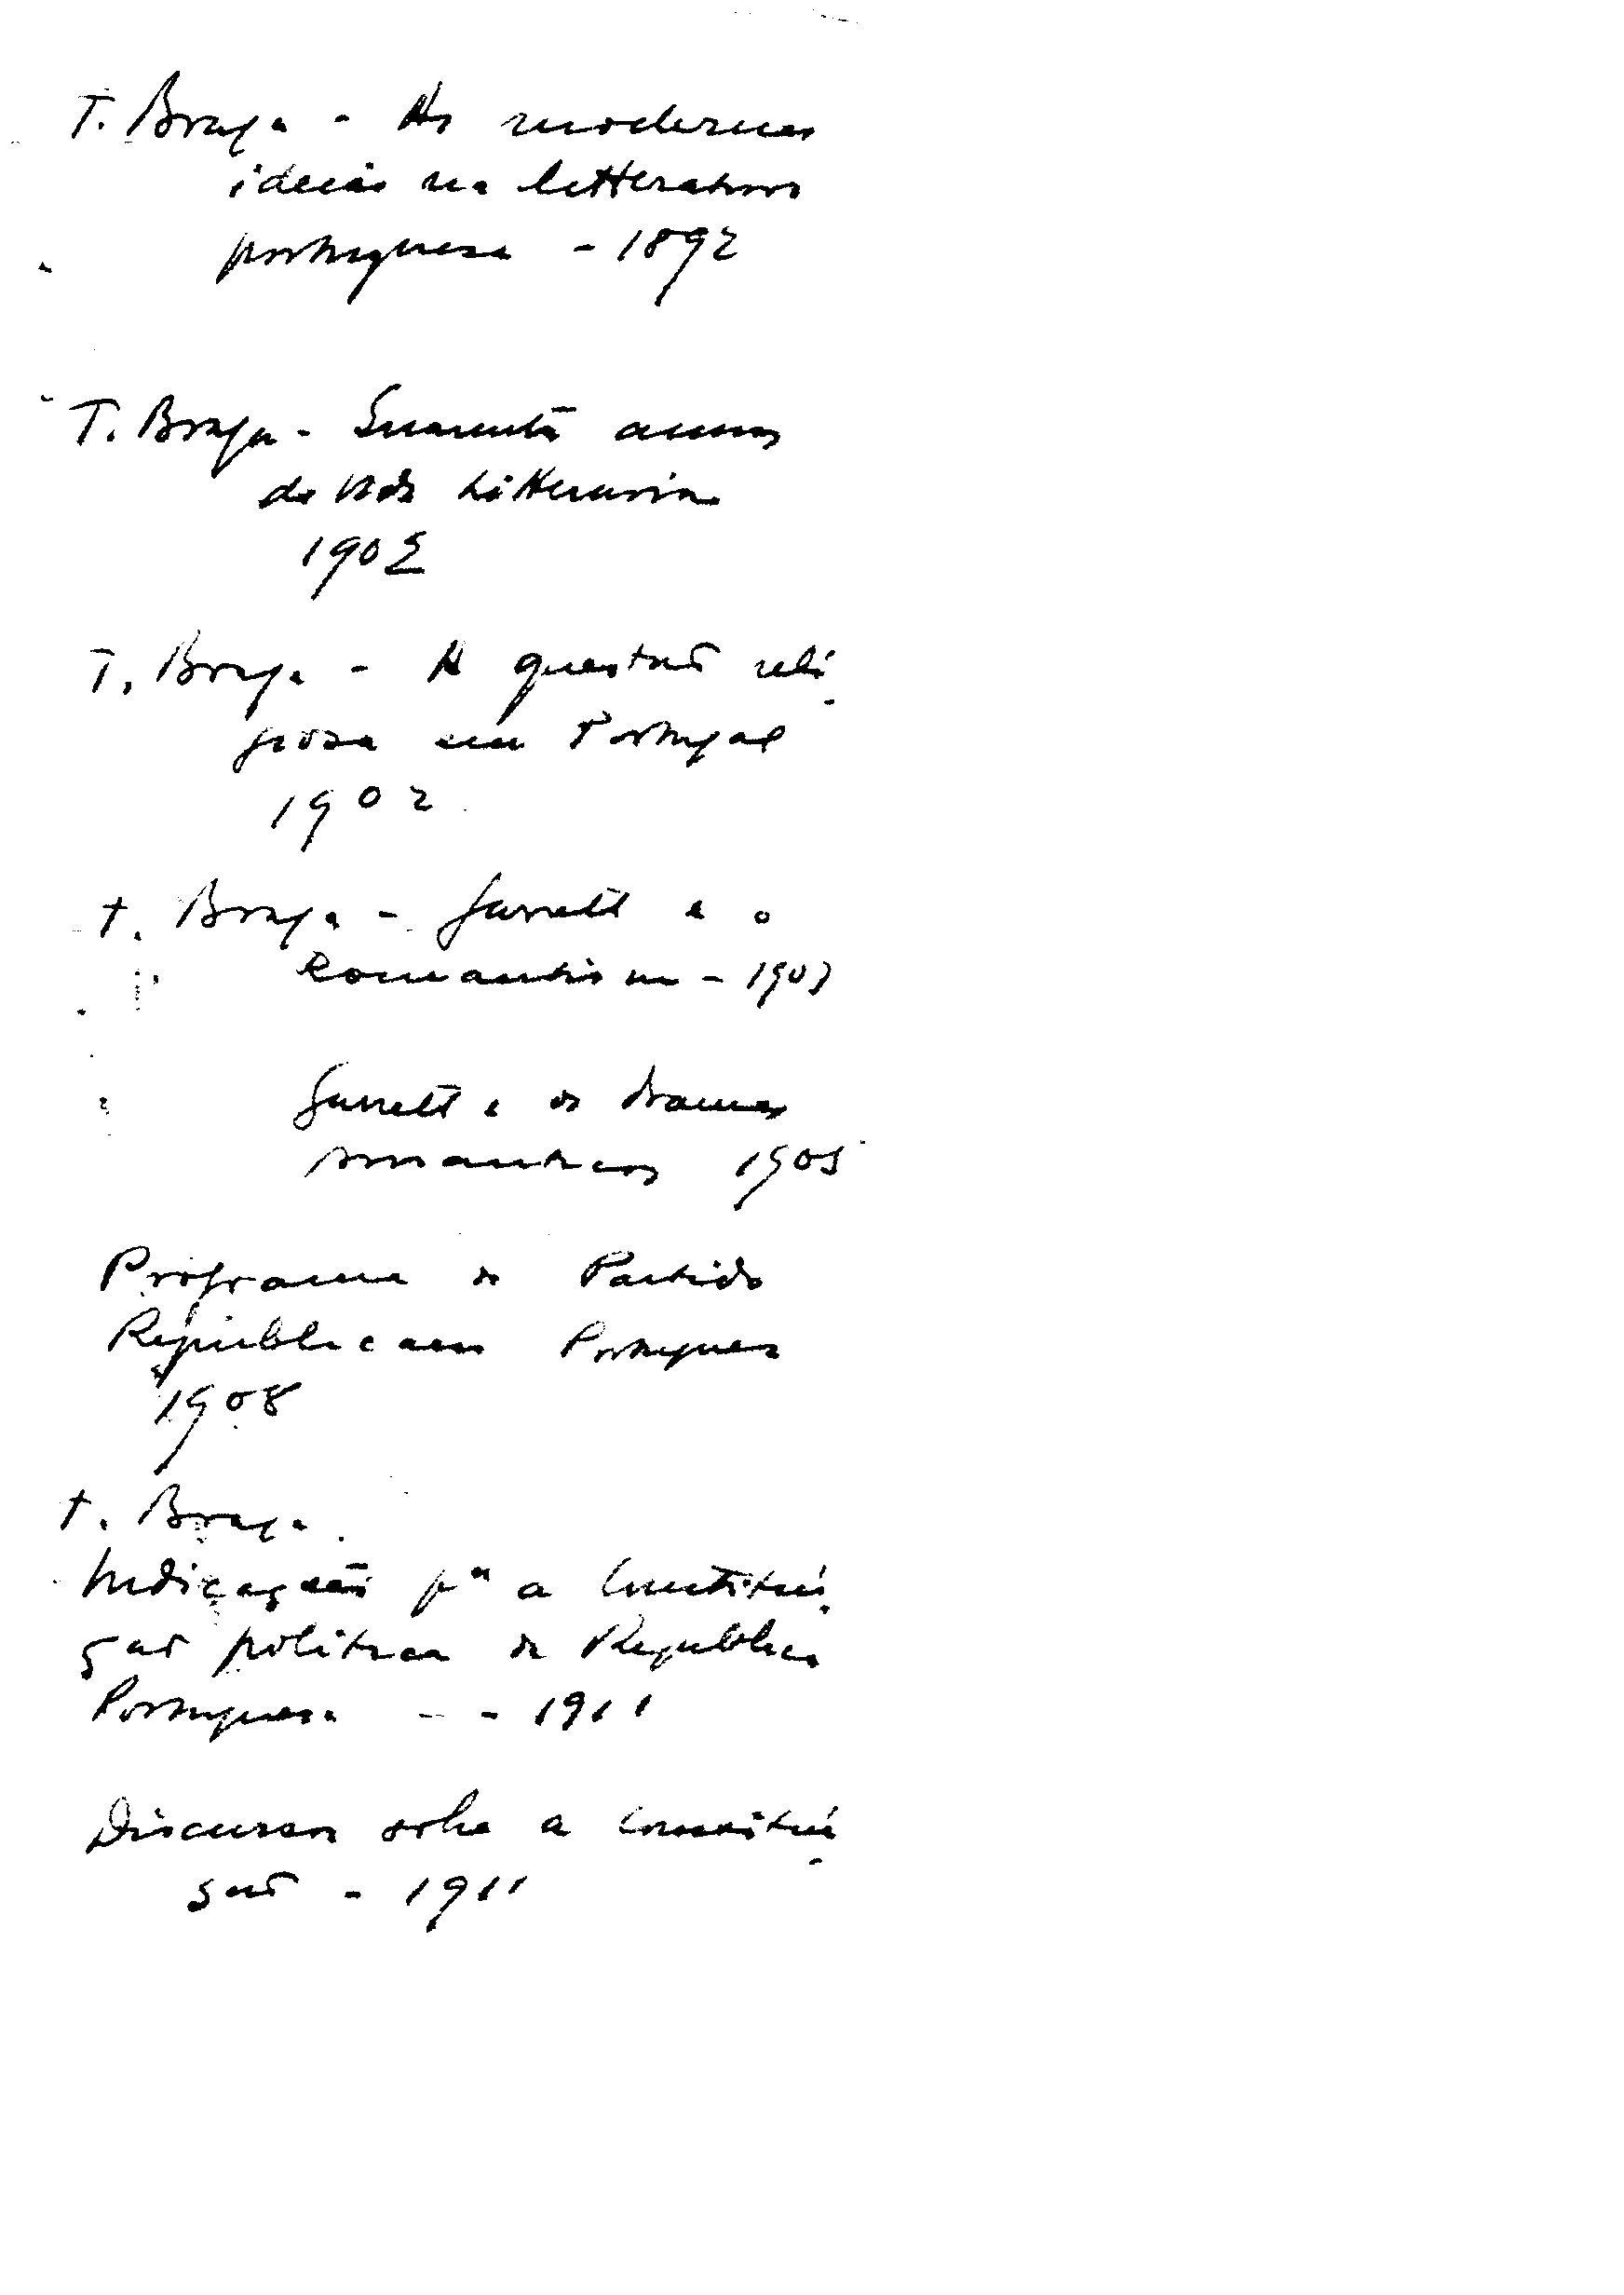 T. Braga - As modernas
ideias na litteratura
portuguesa - 1892
T. Braga - Quarenta annos
de vida litteraria
1902
T. Braga - A questão reli-
giosa em Portugal
1902
T. Braga - Garrett e o
Romantismo - 1903
Garrett e os dramas
romanticos 1905
Programa do Partido
Republicano Portugues
1908
T. Braga
Indicações pª a Constitui-
ção politica da Republica
Portuguesa - - 1911
Discursos sobre a Constitui-
ção - 1911